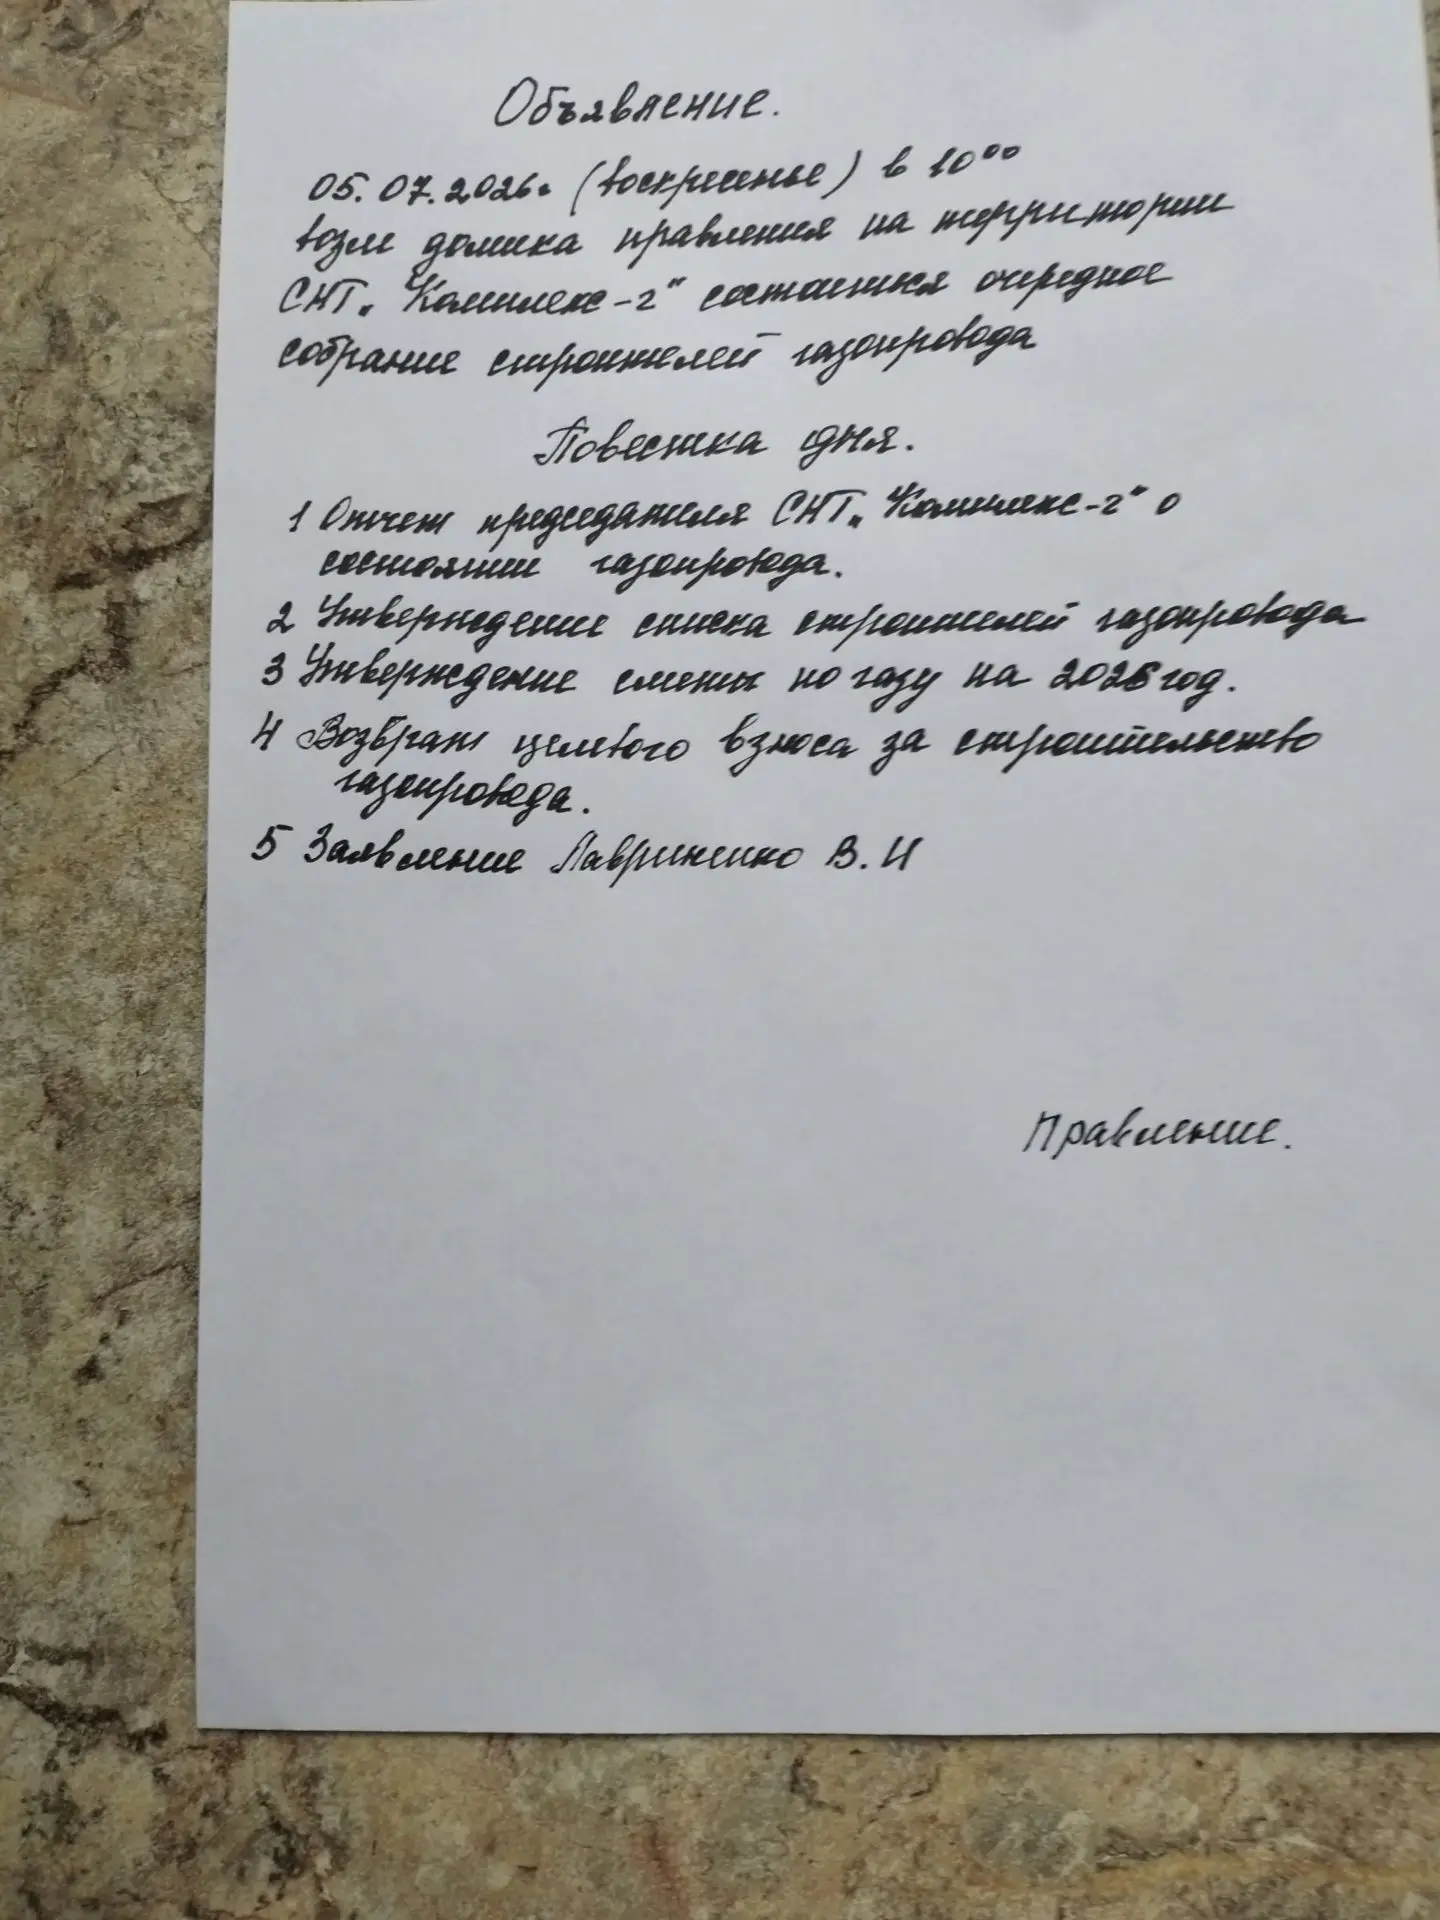 Объявление.
05.07.2026г (воскресенье) в 10⁰⁰
возле домика правления на территории
СНТ „Комплекс-2" состоится очередное
собрание строителей газопровода
Повестка дня.
1 Отчет председателя СНТ „Комплекс-2" о
состоянии газопровода.
2 Утверждение списка строителей газопровода
3 Утверждение сметы по газу на 2026 год.
4 Возврат целевого взноса за строительство
газопровода.
5 Заявление Лавриненко В. И
Правление.